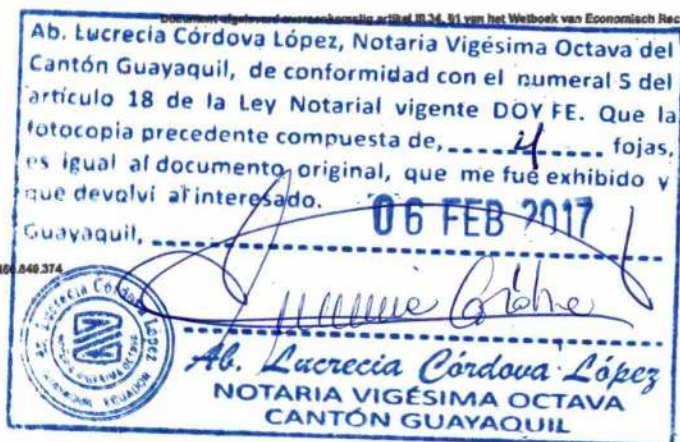 Document afgeleverd overeenkomstig artikel III.34, §1 van het Wetboek van Economisch Rec
Ab. Lucrecia Córdova López, Notaria Vigésima Octava del
Cantón Guayaquil, de conformidad con el numeral 5 del
artículo 18 de la Ley Notarial vigente DOY FE. Que la
fotocopia precedente compuesta de, 4 fojas,
es igual al documento original, que me fue exhibido y
que devolví al interesado.
06 FEB 2017
Guayaquil,
.840.374
Ab. Lucrecia Córdova López
NOTARIA VIGÉSIMA OCTAVA
GUAYAQUIL ECUADOR
Ab. Lucrecia Córdova López
NOTARIA VIGÉSIMA OCTAVA
CANTÓN GUAYAQUIL